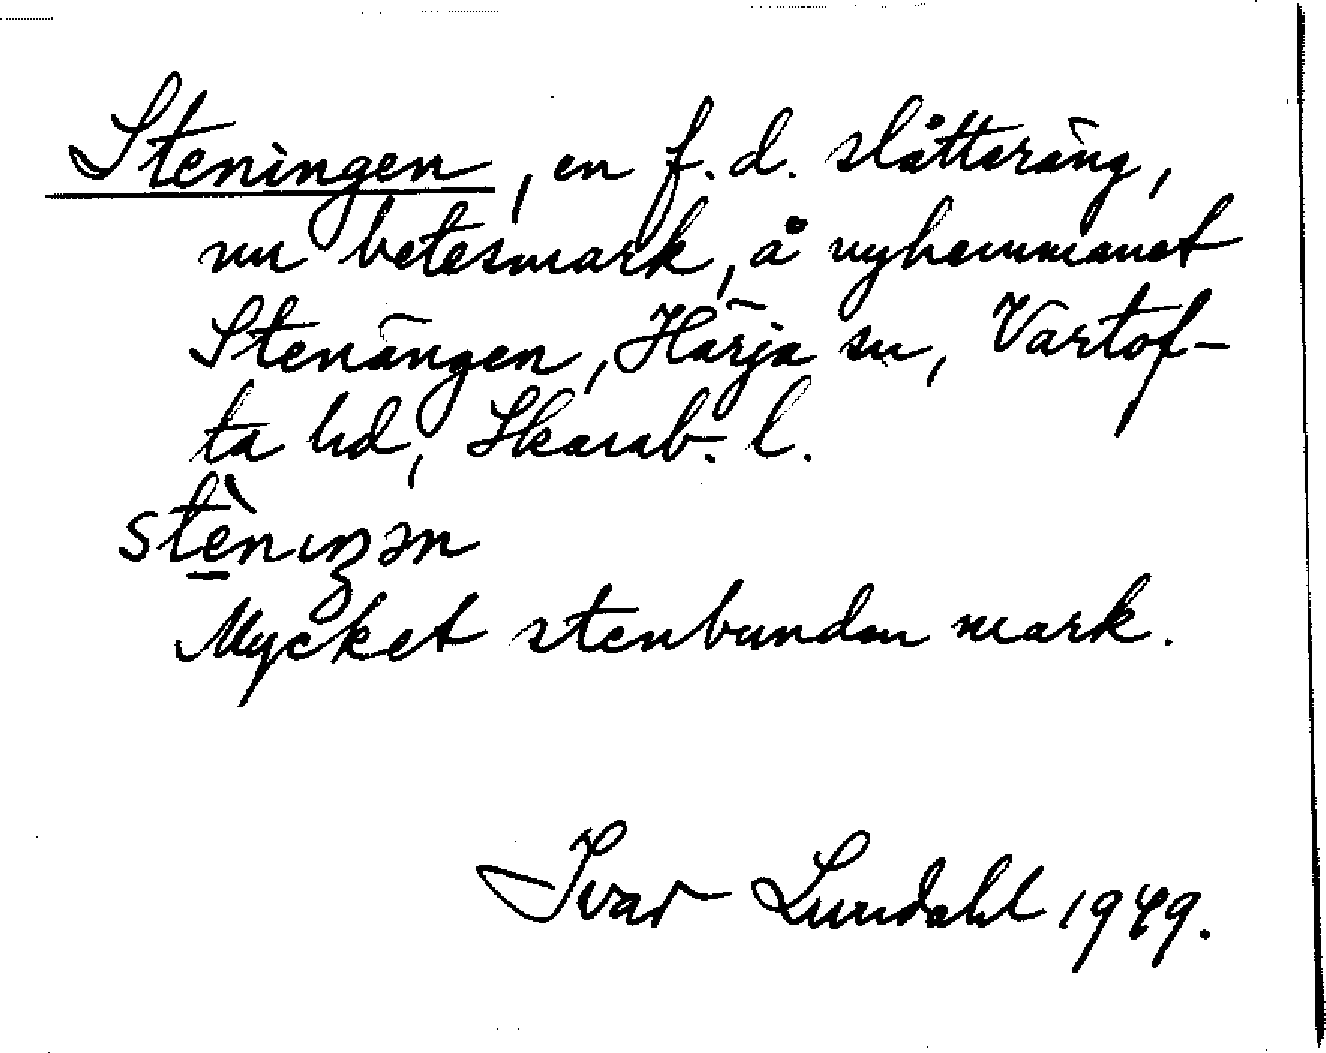 Steningen, en f.d. slåtteräng,
nu betesmark, å nyhemmanet
Stenängen, Härja sn, Vartof-
ta hd, Skarab. l.
Mycket stenbunden mark.
Ivar Lundahl 1949.